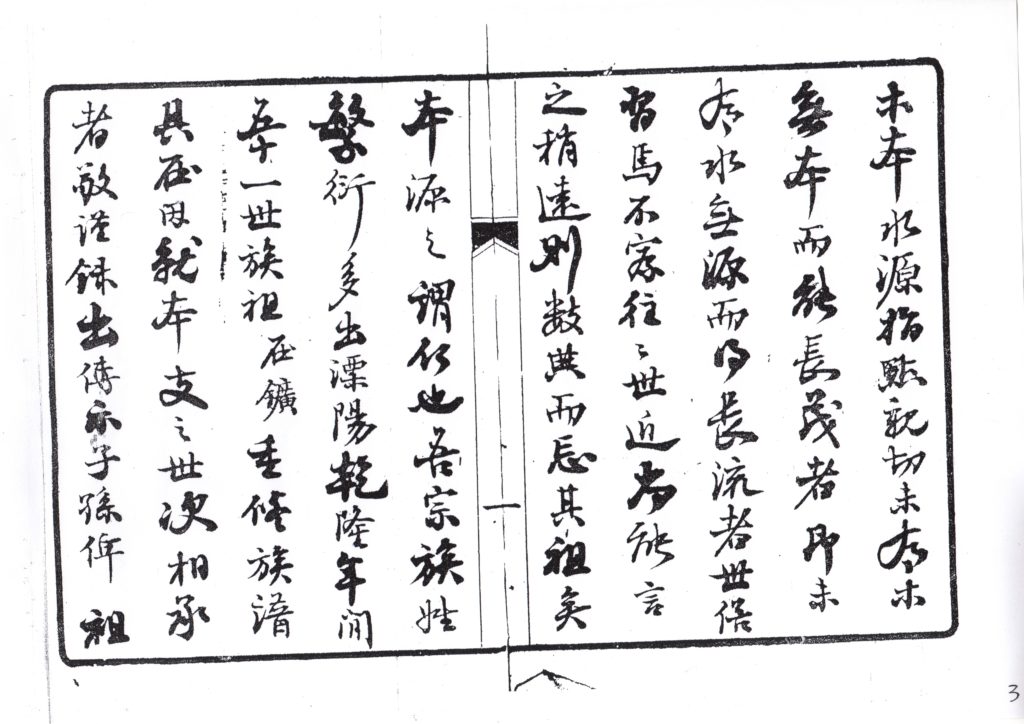 木本水源指點親切未有木
無本而能長茂者即未
有水無源而得長流者世俗
習焉不察往々世近尚能言
之稍遠則數典而忘其祖矣
一
本源之謂何也吾宗族姓
繁衍多出溧陽乾隆年間
一世族祖 鑛重修族譜
具在因就本支之世次相承
者敬謹錄出傳示子孫俾祖
3